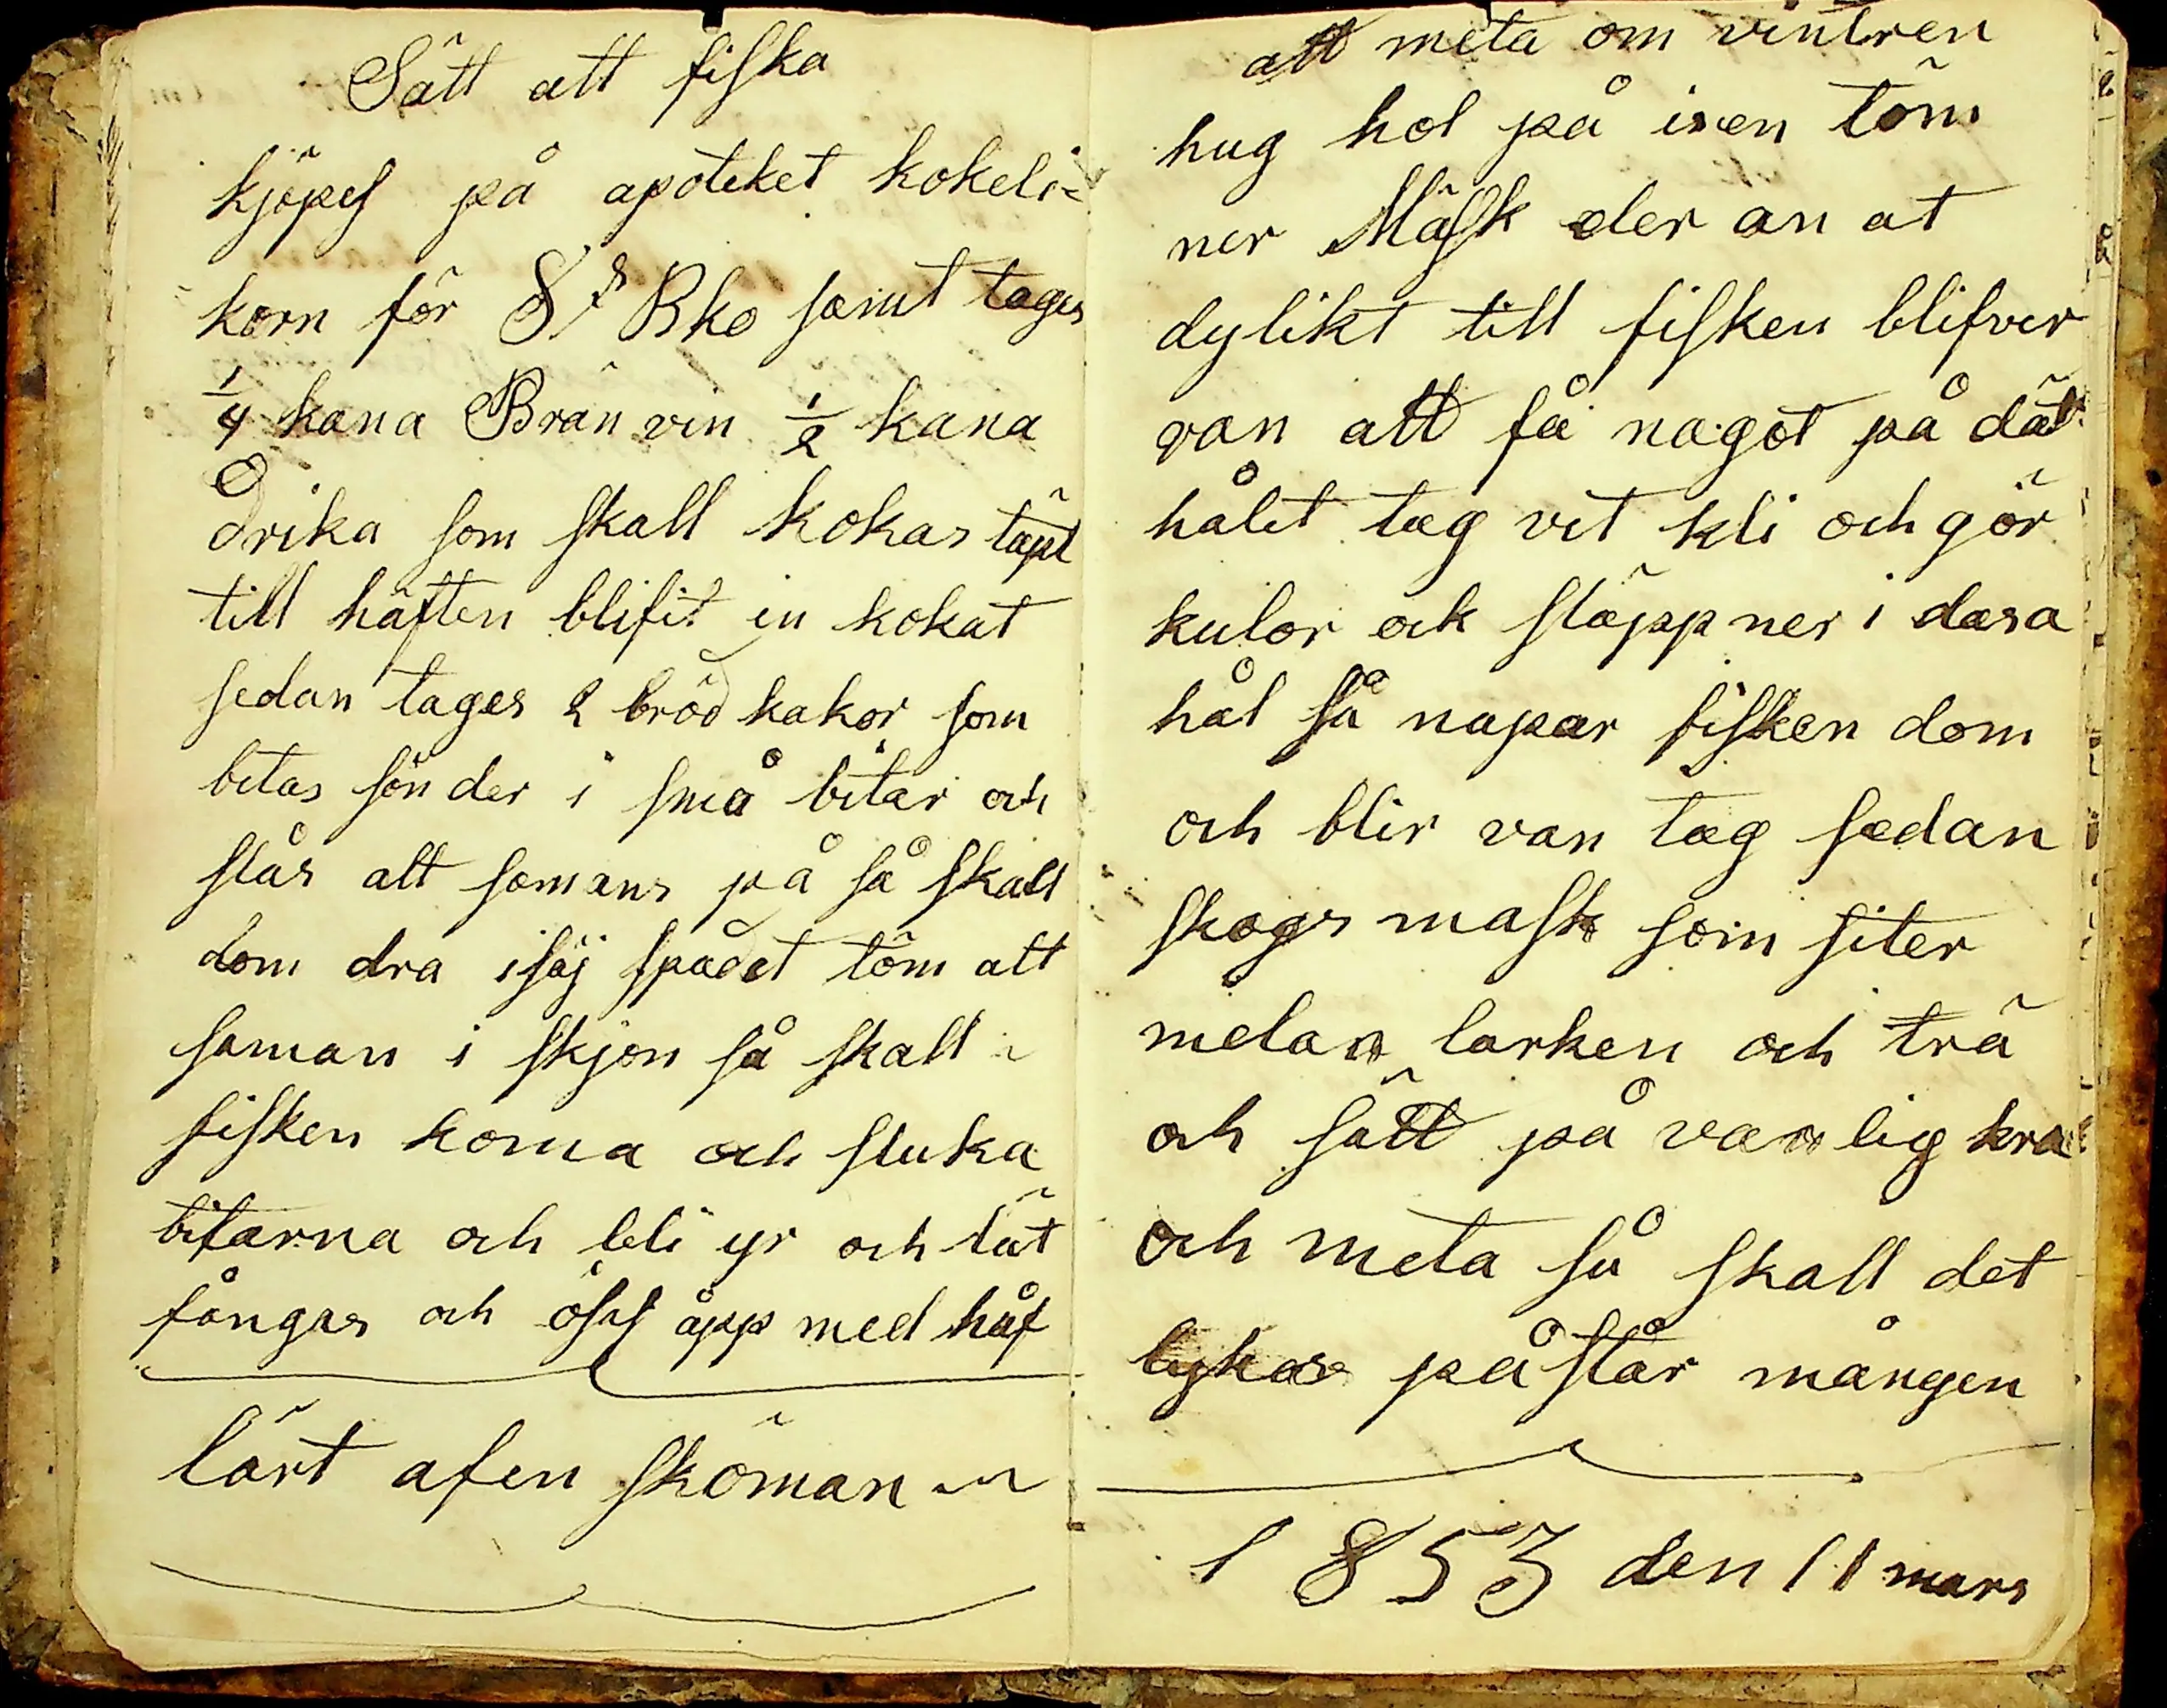 Sätt att fiska
kjöpes på apoteket kokeli-
korn för 8 s Bko samt tages
1/4 kana Brän vin 1/2 kana
Drika som skall kokas täpt
till häften blifit in kokat
sedan tages 2 bröd kakor som
betas sönder i små bitar och
slås alt somans på så skall
dom dra isäj spadet töm alt
saman i skjön så skall
fisken koma och sluka
bitarna och bli yr och lät
fångas och öses åpp med håf
lärt af en sköman
att meta om vintren
hug hol på isen töm
ner Mäsk eler an at
dylikt till fisken blifver
van att få nagot på dät
hålet tag vet kli och gör
kulor ock släpp ner i dasa
hål så napar fisken dom
och blir van tag sedan
skogs mask som siter
melan larken och trä
och sätt på vanlig
och meta så skall det
lykas påstår mången
1853 den 11 mars